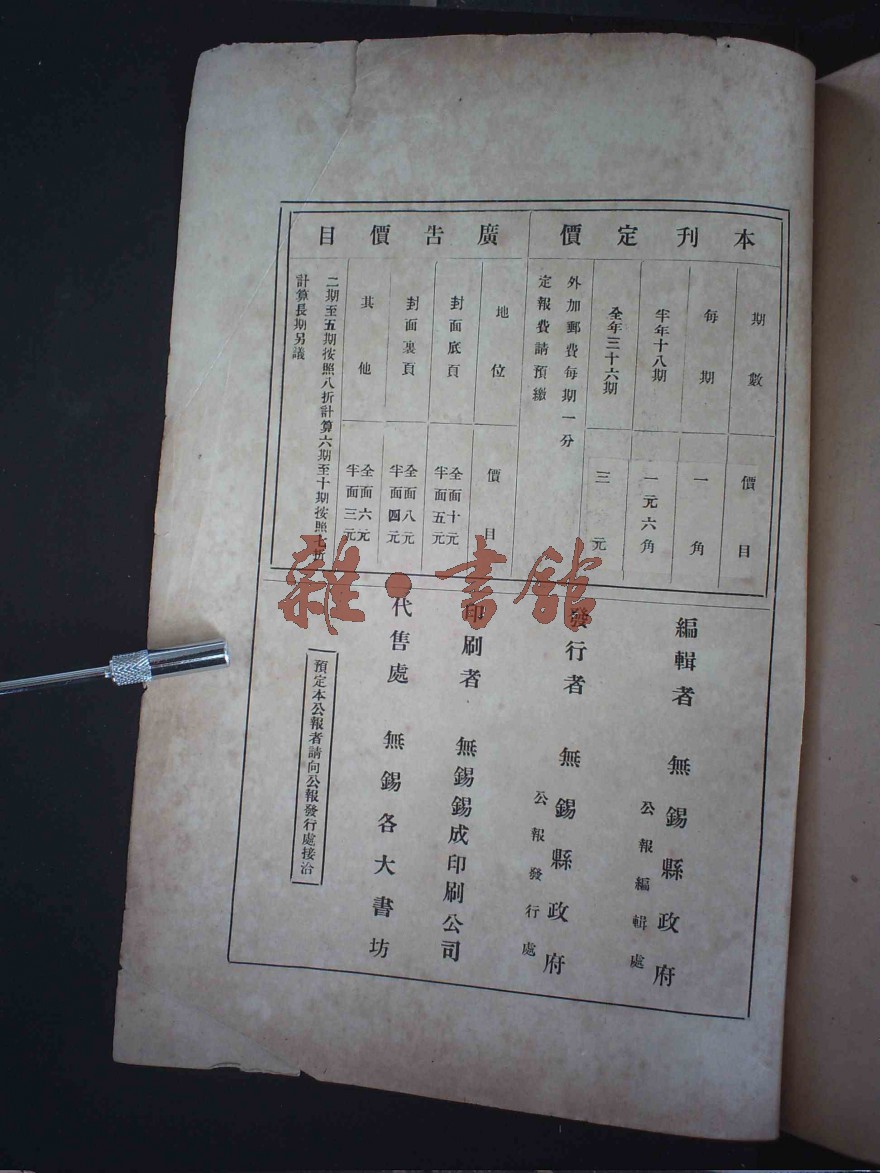 本刊定價
期數 價目
每期 一角
半年十八期 一元六角
全年三十六期 三元
外加郵費每期一分
定報費請預繳
廣告價目
地位 價目
封面底頁 全面十元 半面五元
封面裏頁 全面八元 半面四元
其他 全面六元 半面三元
二期至五期按照八折計算六期至十期按照七折
計算長期另議
編輯者 無錫縣政府
公報編輯處
發行者 無錫縣政府
公報發行處
印刷者 無錫錫成印刷公司
代售處 無錫各大書坊
預定本公報者請向公報發行處接洽
雜·書館